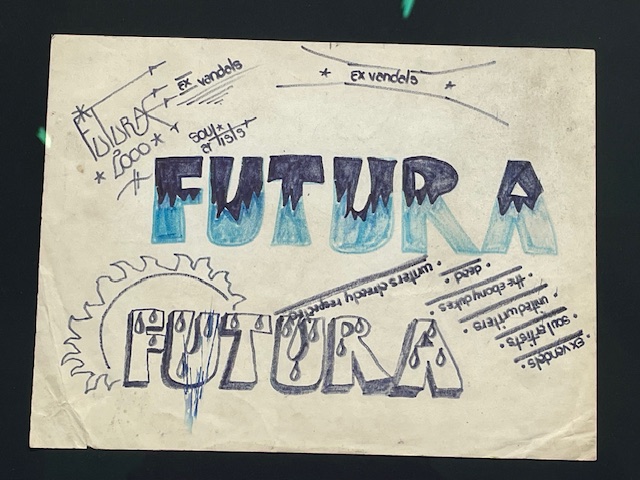 FUTURA
2000
EX vandals
soul
artists
EX vandals
FUTURA
FUTURA
writers already respected
dead
the ebony dukes
united writers
soul artists
ex vandals